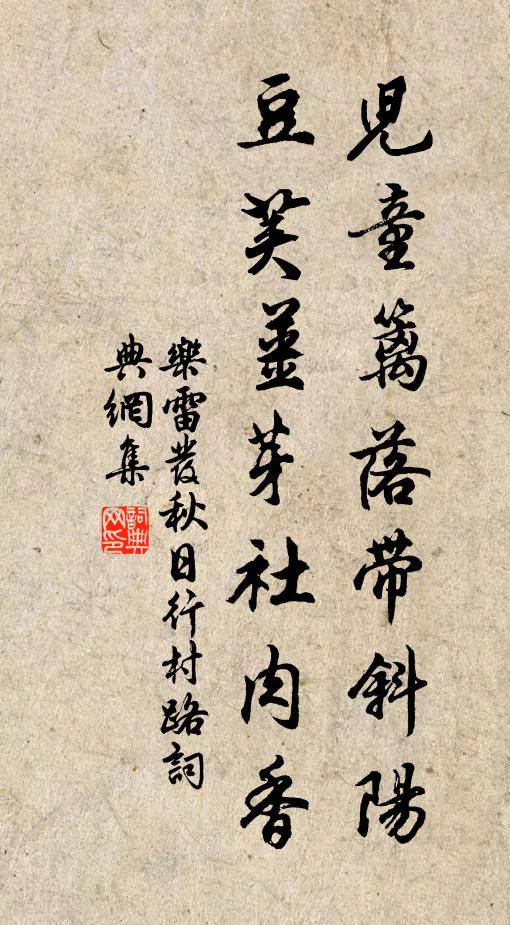 兒童籬落帶斜陽
豆芙薑芽社肉香
樂雷發秋日行村路詞
典網集
詞典网印